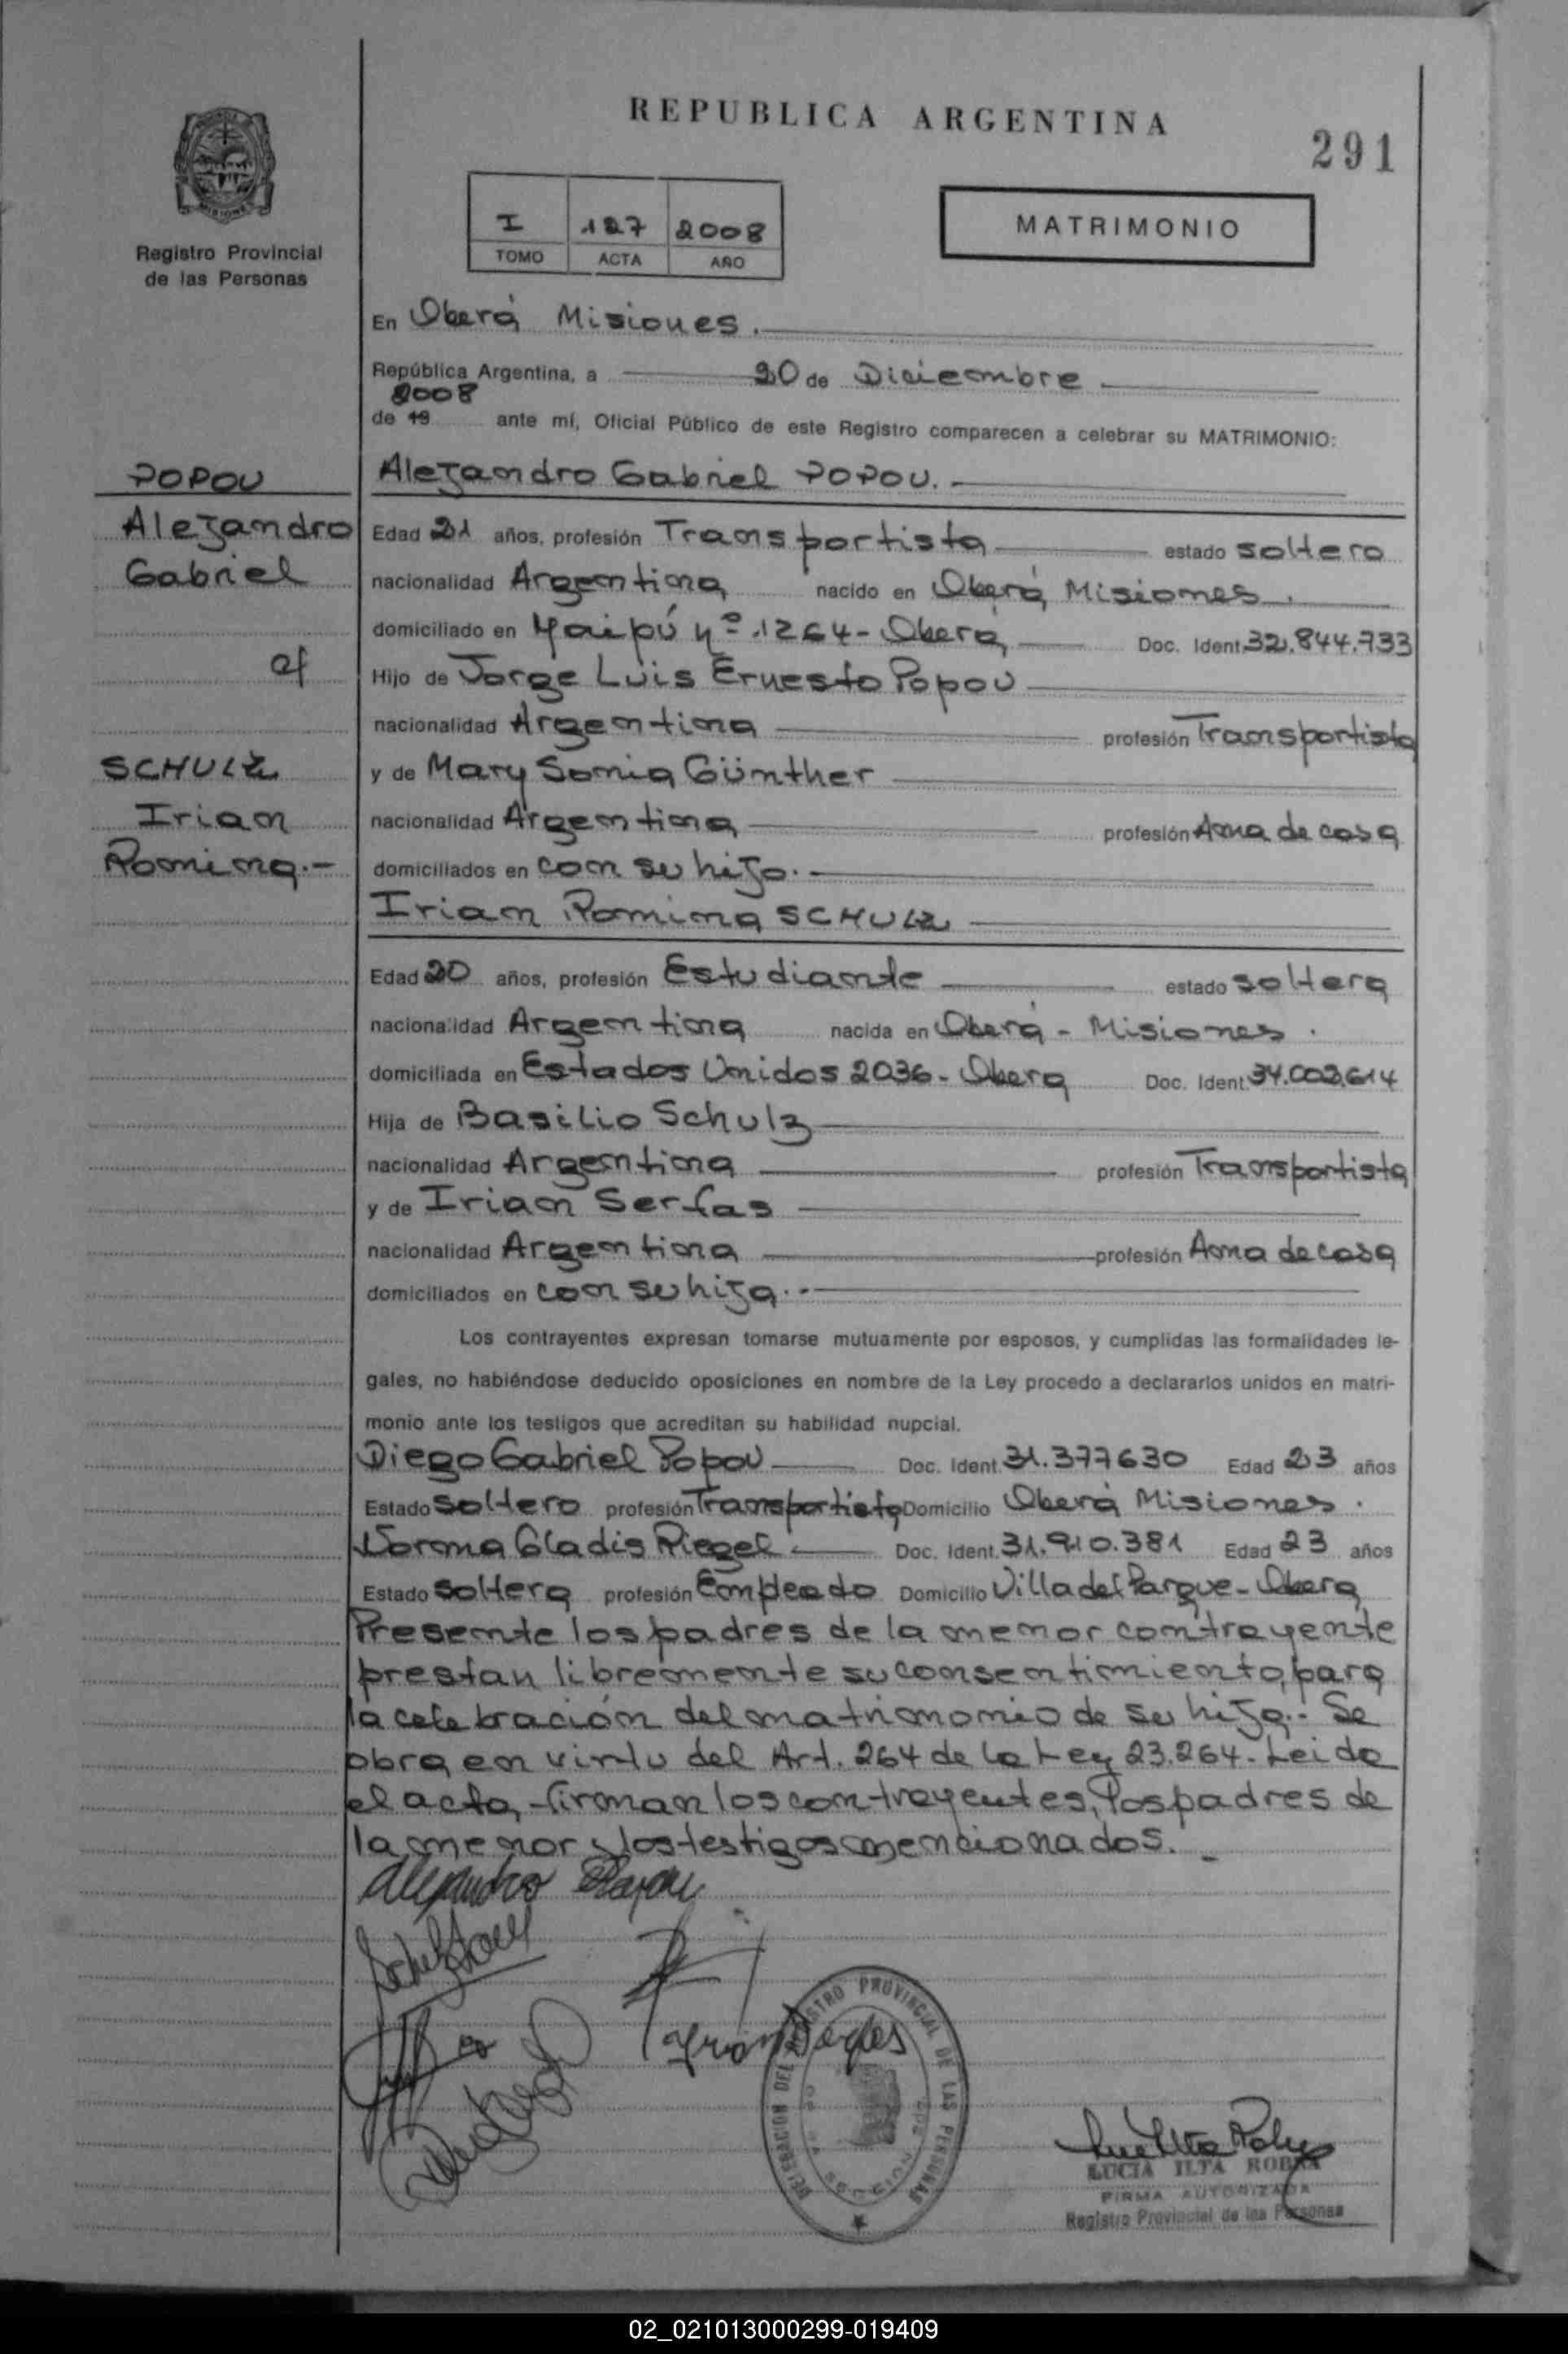 REPUBLICA ARGENTINA
291
Registro Provincial
de las Personas
I 127 2008
TOMO ACTA AÑO
MATRIMONIO
En Oberá Misiones.
República Argentina, a 20 de Diciembre
2008
de 19 ante mí, Oficial Público de este Registro comparecen a celebrar su MATRIMONIO:
POPOV
Alejandro
Gabriel
c/
SCHULZ
Irian
Romina.-
Alejandro Gabriel POPOV.
Edad 21 años, profesión Transportista estado soltero
nacionalidad Argentina nacido en Oberá Misiones.
domiciliado en Maipú Nº 1264- Oberá Doc. Ident. 32.844.733
Hijo de Jorge Luis Ernesto Popov
nacionalidad Argentina profesión Transportista
y de Mary Sonia Günther
nacionalidad Argentina profesión Ama de casa
domiciliados en con su hijo.
Irian Romina SCHULZ
Edad 20 años, profesión Estudiante estado soltera
nacionalidad Argentina nacida en Oberá - Misiones.
domiciliada en Estados Unidos 2036- Oberá Doc. Ident. 34.002.614
Hija de Basilio Schulz
nacionalidad Argentina profesión Transportista
y de Irian Serfas
nacionalidad Argentina profesión Ama de casa
domiciliados en con su hija.-
Los contrayentes expresan tomarse mutuamente por esposos, y cumplidas las formalidades le-
gales, no habiéndose deducido oposiciones en nombre de la Ley procedo a declararlos unidos en matri-
monio ante los testigos que acreditan su habilidad nupcial.
Diego Gabriel Popov Doc. Ident. 31.377630 Edad 23 años
Estado soltero profesión Transportista Domicilio Oberá Misiones.
Norma Gladis Riegel Doc. Ident. 31.910.381 Edad 23 años
Estado soltera profesión Empleado Domicilio Villa del Parque- Oberá
Presente los padres de la menor contrayente
prestan libremente su consentimiento, para
la celebración del matrimonio de su hija.- Se
obra en virtu del Art. 264 de la Ley 23.264- Leida
el acta, firman los contrayentes, los padres de
la menor y los testigos mencionados.
Alejandro Popov
Irian Serfas
DELEGACION DEL REGISTRO PROVINCIAL DE LAS PERSONAS
LUCIA ILTA ROBKA
FIRMA AUTORIZADA
Registro Provincial de las Personas
02_021013000299-019409